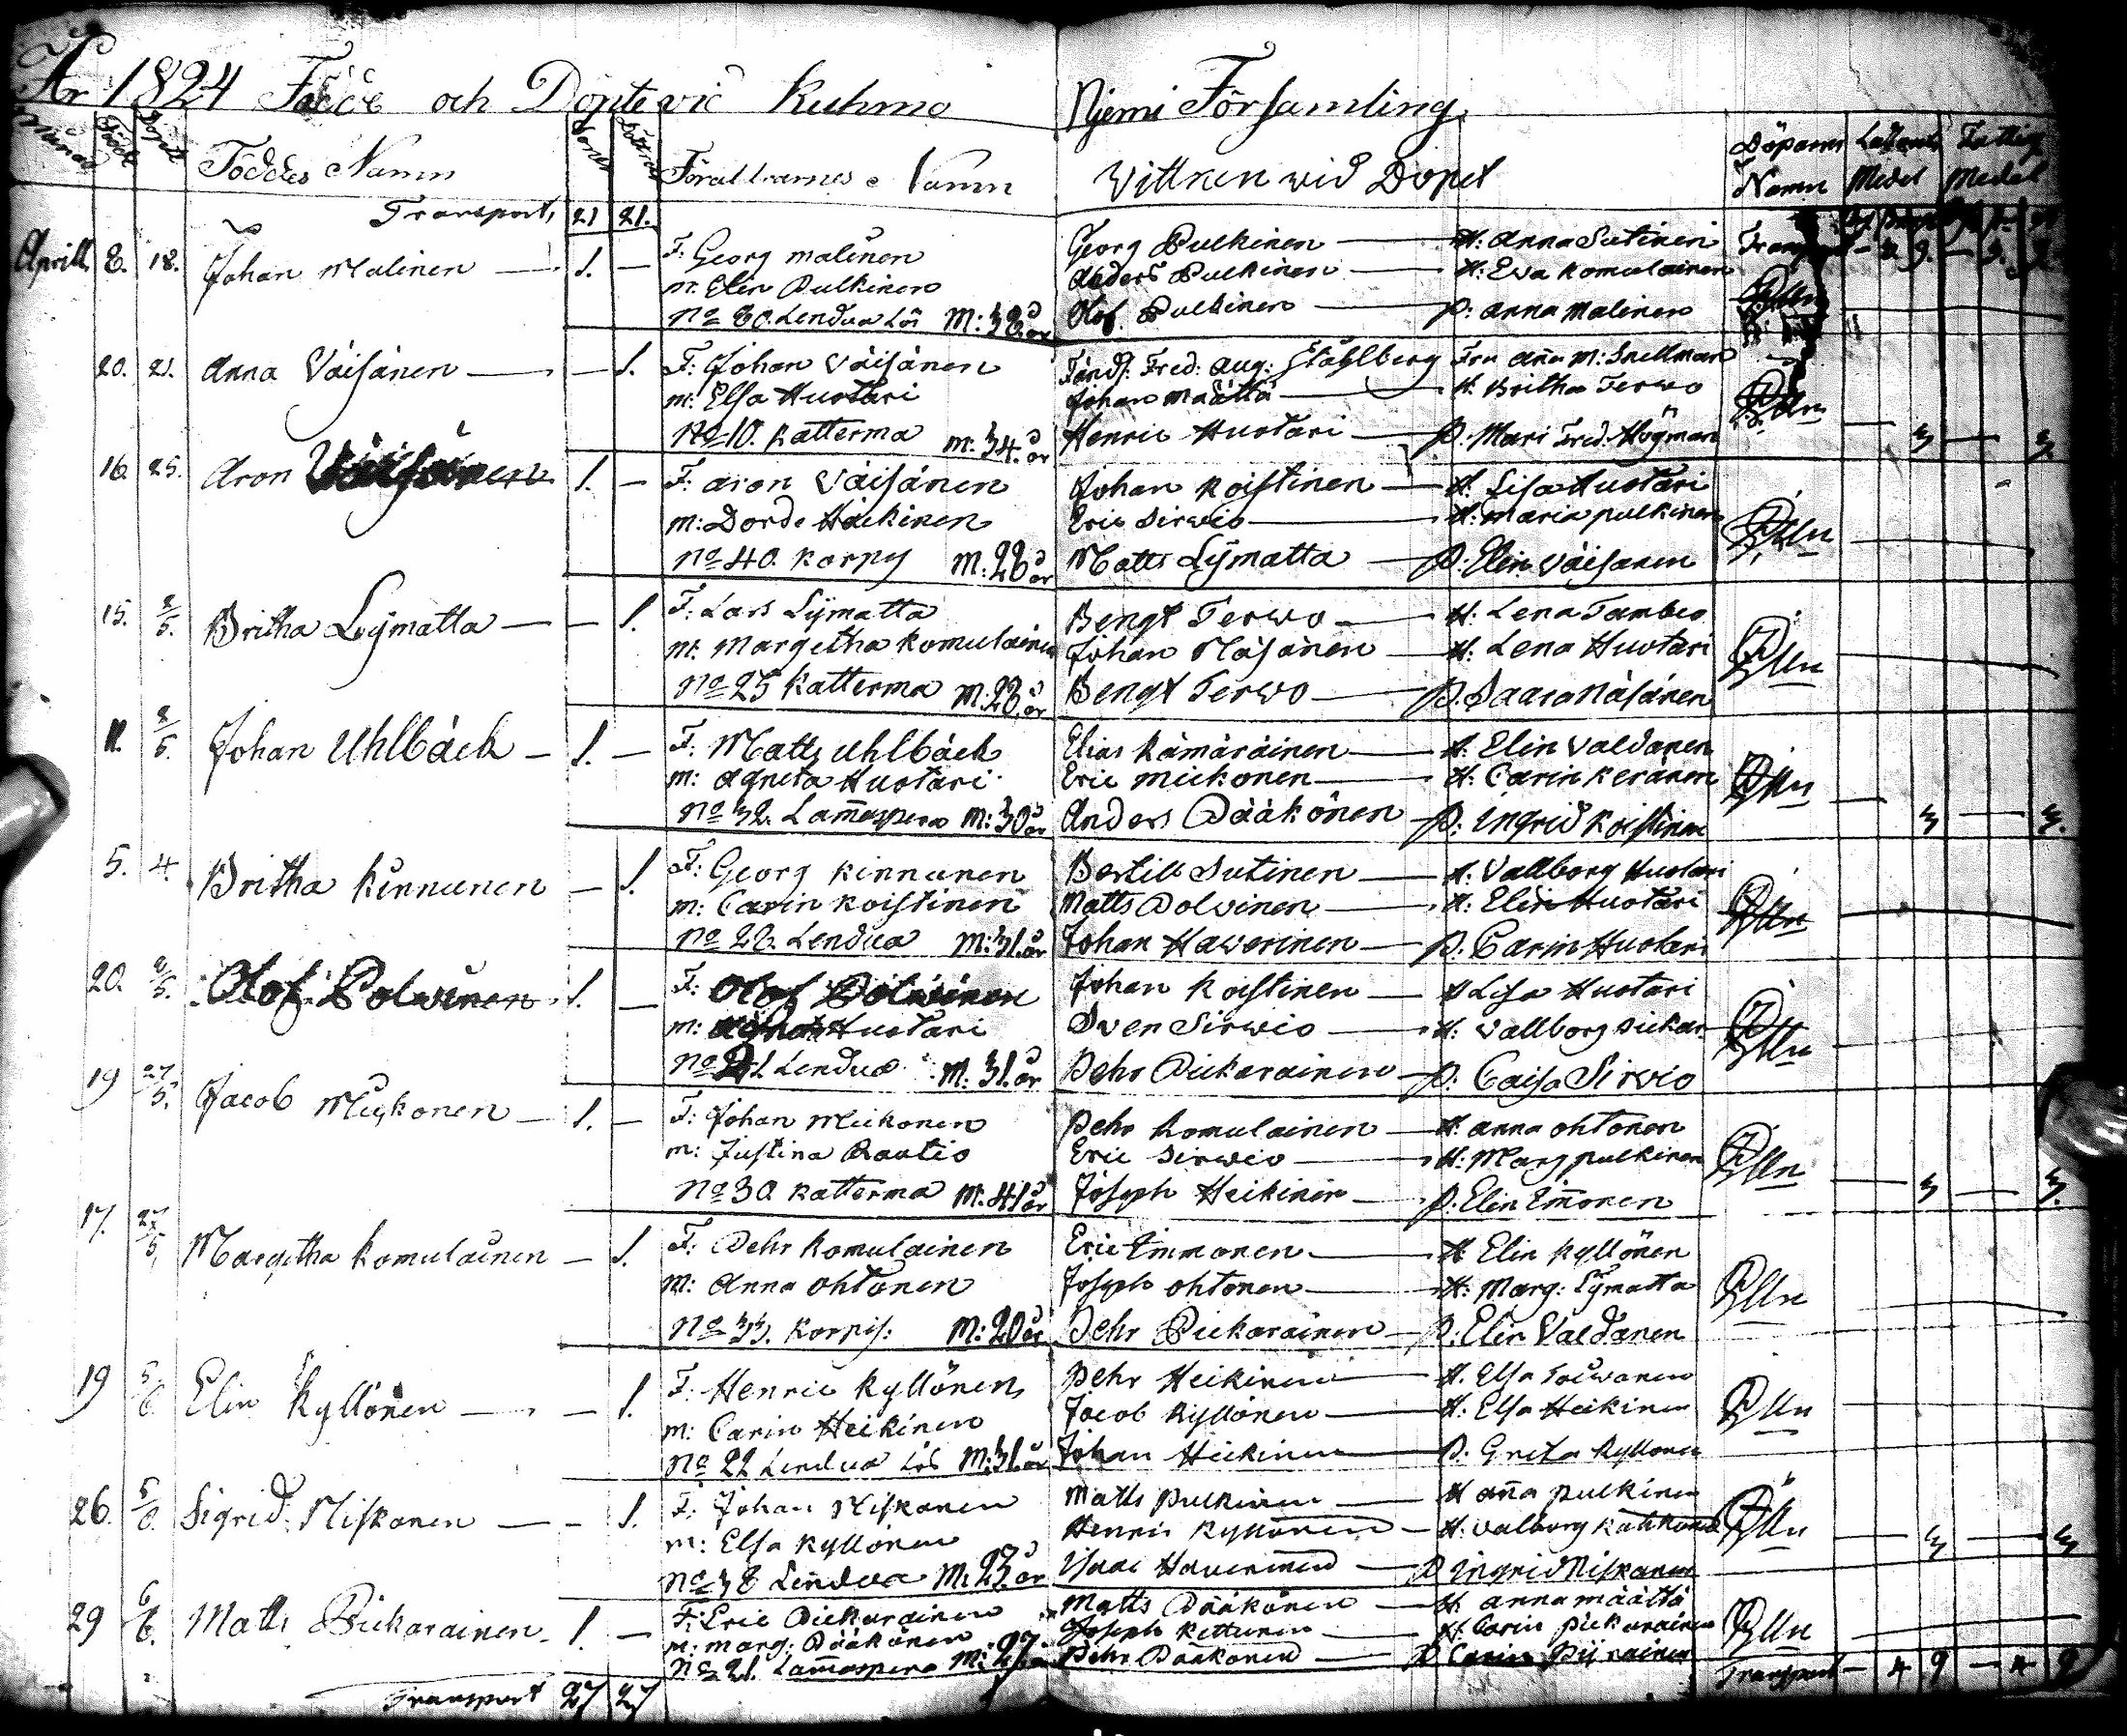 År 1824 Födde och Döpte vid Kuhmo Njemi Församling
Månad Född Döpt Föddes Namn Söner Döttrar Föräldrarnes Namn Vittnen vid Dopet Döparens Namn Medel Fattig Medel
Transport, 21 21.
Aprill 8. 18. Johan Malinen — 1. — F: Georg Malinen Georg Pulkinen — H: Anna Sutinen Transport
m: Elin Pulkinen Anders Pulkinen — H: Eva Komulainen
No 80. Lendua Lös M: 38 år Olof Pulkinen — P: Anna Malinen
20. 21. Anna Väisänen — — 1. F: Johan Väisänen Fred: Aug: Ståhlberg Fru Anna M: Snellman
m: Elsa Huotari Johan Määttä — H: Britha Terwo
No 10. Katterma m: 34. år Henric Huotari — P: Mari Fred: Högman 3 — 3.
16. 25. Aron Väisänen 1. — F: Aron Väisänen Johan Koistinen — H: Lisa Huotari
m: Dorde Häikinen Eric Sirwio — H: Maria Pulkinen
No 40. Korpis M: 28 år Matts Lÿmatta — P: Elin Väisänen
15. 2/5. Britha Lÿmatta — — 1. F: Lars Lÿmatta Bengt Terwo — H: Lena Tambeo
m: Margetha Komulainen Johan Näsänen — H: Lena Huotari
No 25 Katterma M: 28. år Bengt Terwo — P: Saara Näsänen
11. 2/5. Johan Uhlbäck — 1. — F: Matts Uhlbäck Elias Kämäräinen — H: Elin Valdanen
m: Agneta Huotari Eric Mickonen — H: Carin Keränen
No 32. Lammaspera M: 30 år Anders Pääkönen P: Ingrid Koistinen — 3 — 3.
5. 4. Britha Kinnunen — 1. F: Georg Kinnunen Bertill Sutinen — H: Vallborg Huotari
m: Carin Koistinen Matts Polvinen — H: Elin Huotari
No 28. Lendua M: 31. år Johan Hawerinen — P: Carin Huotari
20. 2/5. Olof Polwinen 1. — F: Olof Polwinen Johan Koistinen — H Lisa Huotari
m: Huotari Sven Sirwio — H: Vallborg Pickar.
Lendua M: 31. år Pehr Pickarainen — P: Caisa Sirwio
19 27/5. Jacob Mickonen — 1. — F: Johan Mickonen Pehr Komulainen — H: Anna Ohtonen
m: Justina Rautio Eric Sirwio — H: Marg Pulkinen
No 30. Katterma M: 41 år Joseph Heikinen — P: Elin Immonen — 3 — 3.
17. 27/5, Margetha Komulainen — 1. F: Pehr Komulainen Eric Immonen — H Elin Kyllönen
M: Anna Ohtonen Joseph Ohtonen — H: Marg: Lÿmatta
No 33. Korpis: M: 20 år Pehr Pickarainen — P: Elin Valdanen
19 5/6. Elin Kyllönen — — 1. F: Henric Kyllönen Pehr Heikinen — H. Elsa Toiwanen
m: Carin Heikinen Jacob Kyllönen — H: Elsa Heikinen
No 22 Lendua Lös M: 31. år Johan Heikinen — P: Greta Kyllönen
26. 5/6. Sigrid Niskanen — — 1. F: Johan Niskanen Matts Pulkinen — H Anna Pulkinen
m: Elsa Kyllönen Henric Kyllönen — H: Valborg Kähkönen
No 38 Lendua M: 25. år Isaac Hawerinen — P Ingrid Niskanen — 3 — 3
29 6/6. Matts Pickarainen. 1. — F: Eric Pickarainen Matts Pääkönen — H Anna Määttä
m: Marg: Pääkönen Joseph Kettunen — H: Carin Pickarainen
No 21. Lammaspera M: 27. Pehr Pääkönen — P Carin Piirainen
Transport 27 27 Transport — 4 9 — 4 9